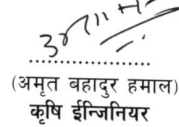 (अमृत बहादुर हमाल)
कृषि ईन्जिनियर